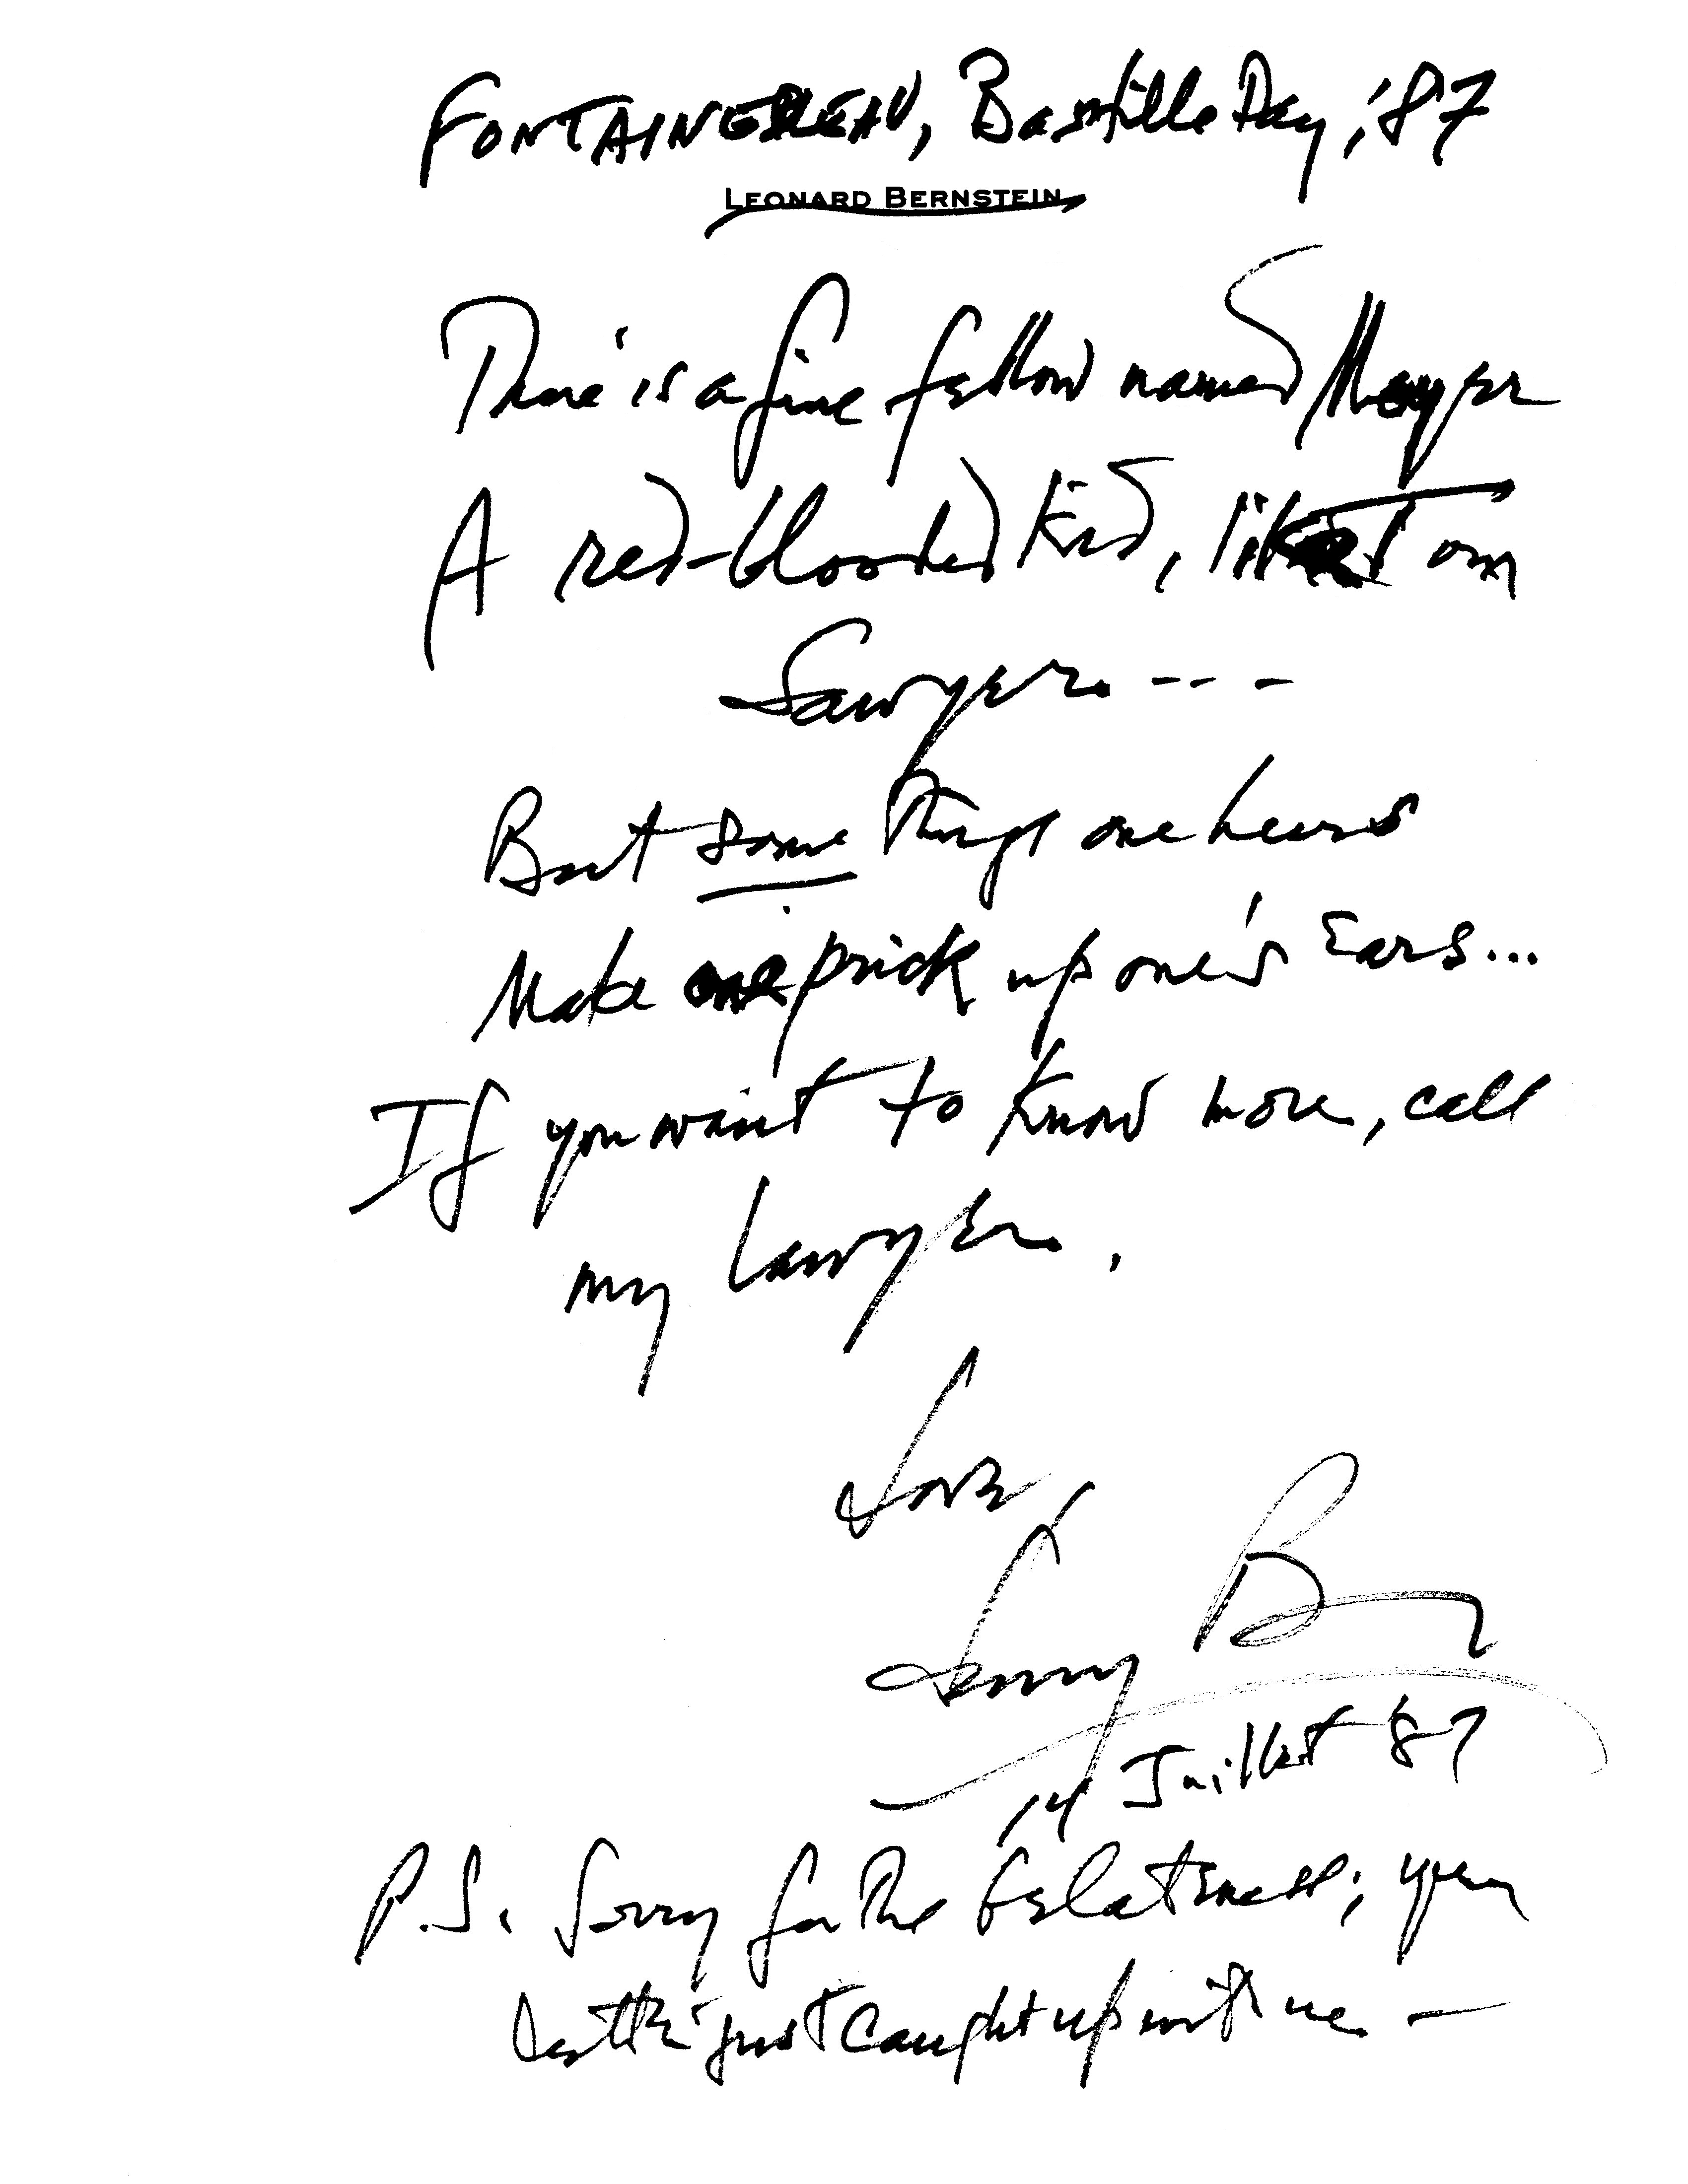 FONTAINEBLEAU, Bastille Day, '87
LEONARD BERNSTEIN
There is a fine fellow named Meyer
A red-blooded kid, like Tom
Sawyer. ---
But some things one hears
Make one prick up one's Ears...
If you want to know more, call
my lawyer.
Love,
Lenny B
14 Juillet 87
P.S. Sorry for the belatedness; your
letter just caught up with me —